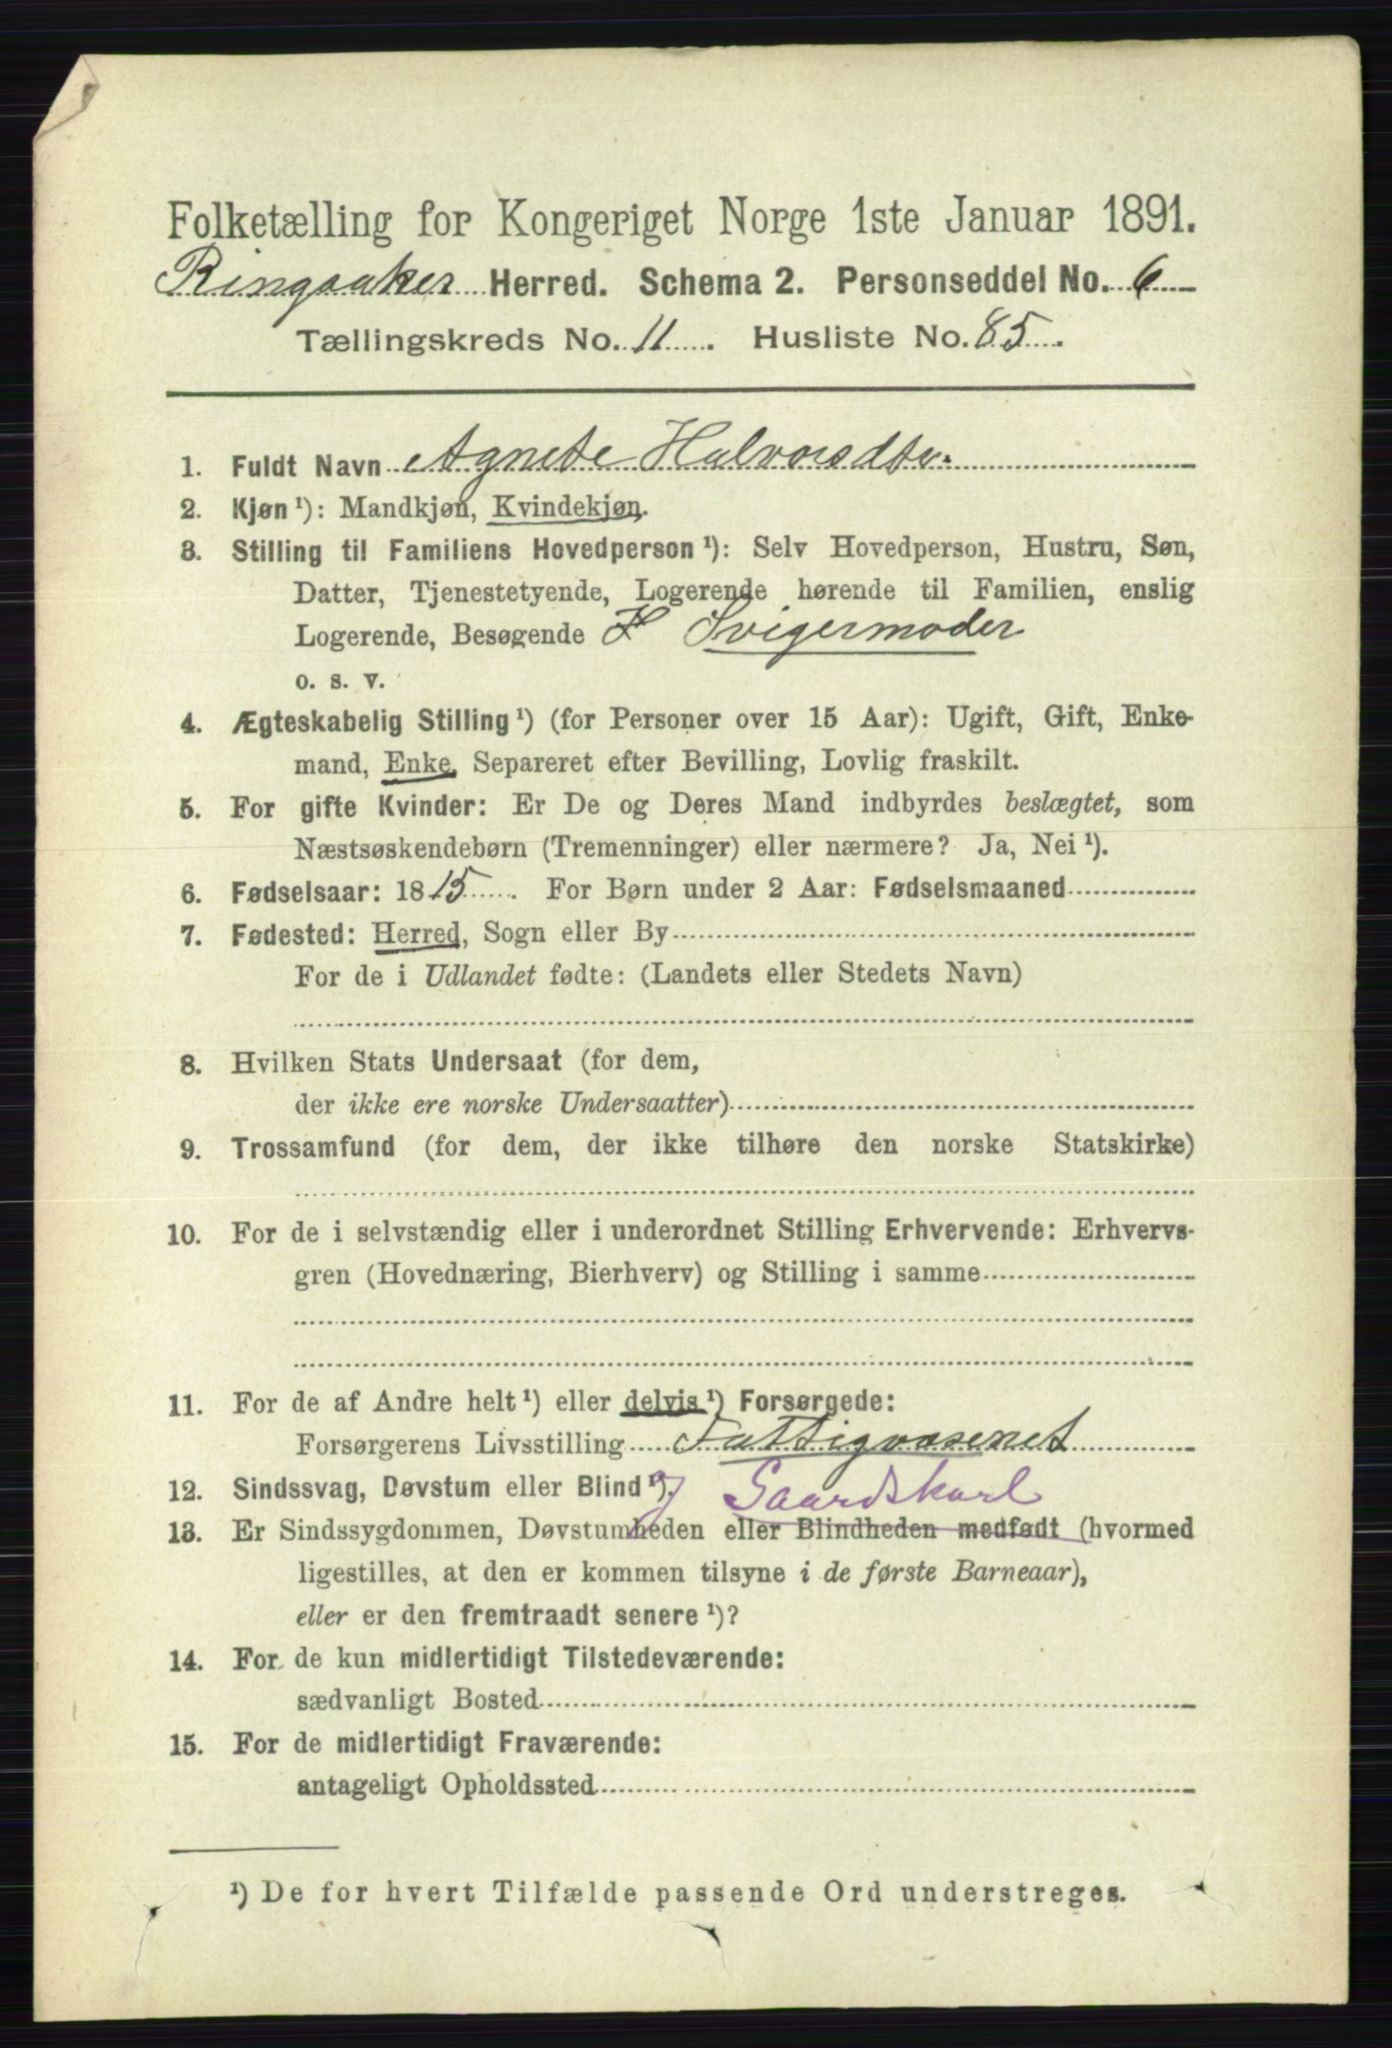 Folketælling for Kongeriget Norge 1ste Januar 1891.
Ringsaker Herred. Schema 2. Personseddel No. 6
Tællingskreds No. 11. Husliste No. 85.
1. Fuldt Navn Agnete Halvorsdtr.
2. Kjøn ¹): Mandkjøn, Kvindekjøn.
3. Stilling til Familiens Hovedperson ¹): Selv Hovedperson, Hustru, Søn,
Datter, Tjenestetyende, Logerende hørende til Familien, enslig
Logerende, Besøgende Svigermoder
o. s. v.
4. Ægteskabelig Stilling ¹) (for Personer over 15 Aar): Ugift, Gift, Enke-
mand, Enke, Separeret efter Bevilling, Lovlig fraskilt.
5. For gifte Kvinder: Er De og Deres Mand indbyrdes beslægtet, som
Næstsøskendebørn (Tremenninger) eller nærmere? Ja, Nei ¹).
6. Fødselsaar: 1815. For Børn under 2 Aar: Fødselsmaaned
7. Fødested: Herred, Sogn eller By
For de i Udlandet fødte: (Landets eller Stedets Navn)
8. Hvilken Stats Undersaat (for dem,
der ikke ere norske Undersaatter)
9. Trossamfund (for dem, der ikke tilhøre den norske Statskirke)
10. For de i selvstændig eller i underordnet Stilling Erhvervende: Erhvervs-
gren (Hovednæring, Bierhverv) og Stilling i samme
11. For de af Andre helt ¹) eller delvis ¹) Forsørgede:
Forsørgerens Livsstilling Fattigvæsenet
12. Sindssvag, Døvstum eller Blind ¹). Gaardskarl
13. Er Sindssygdommen, Døvstumheden eller Blindheden medfødt (hvormed
ligestilles, at den er kommen tilsyne i de første Barneaar),
eller er den fremtraadt senere ¹)?
14. For de kun midlertidigt Tilstedeværende:
sædvanligt Bosted
15. For de midlertidigt Fraværende:
antageligt Opholdssted
¹) De for hvert Tilfælde passende Ord understreges.